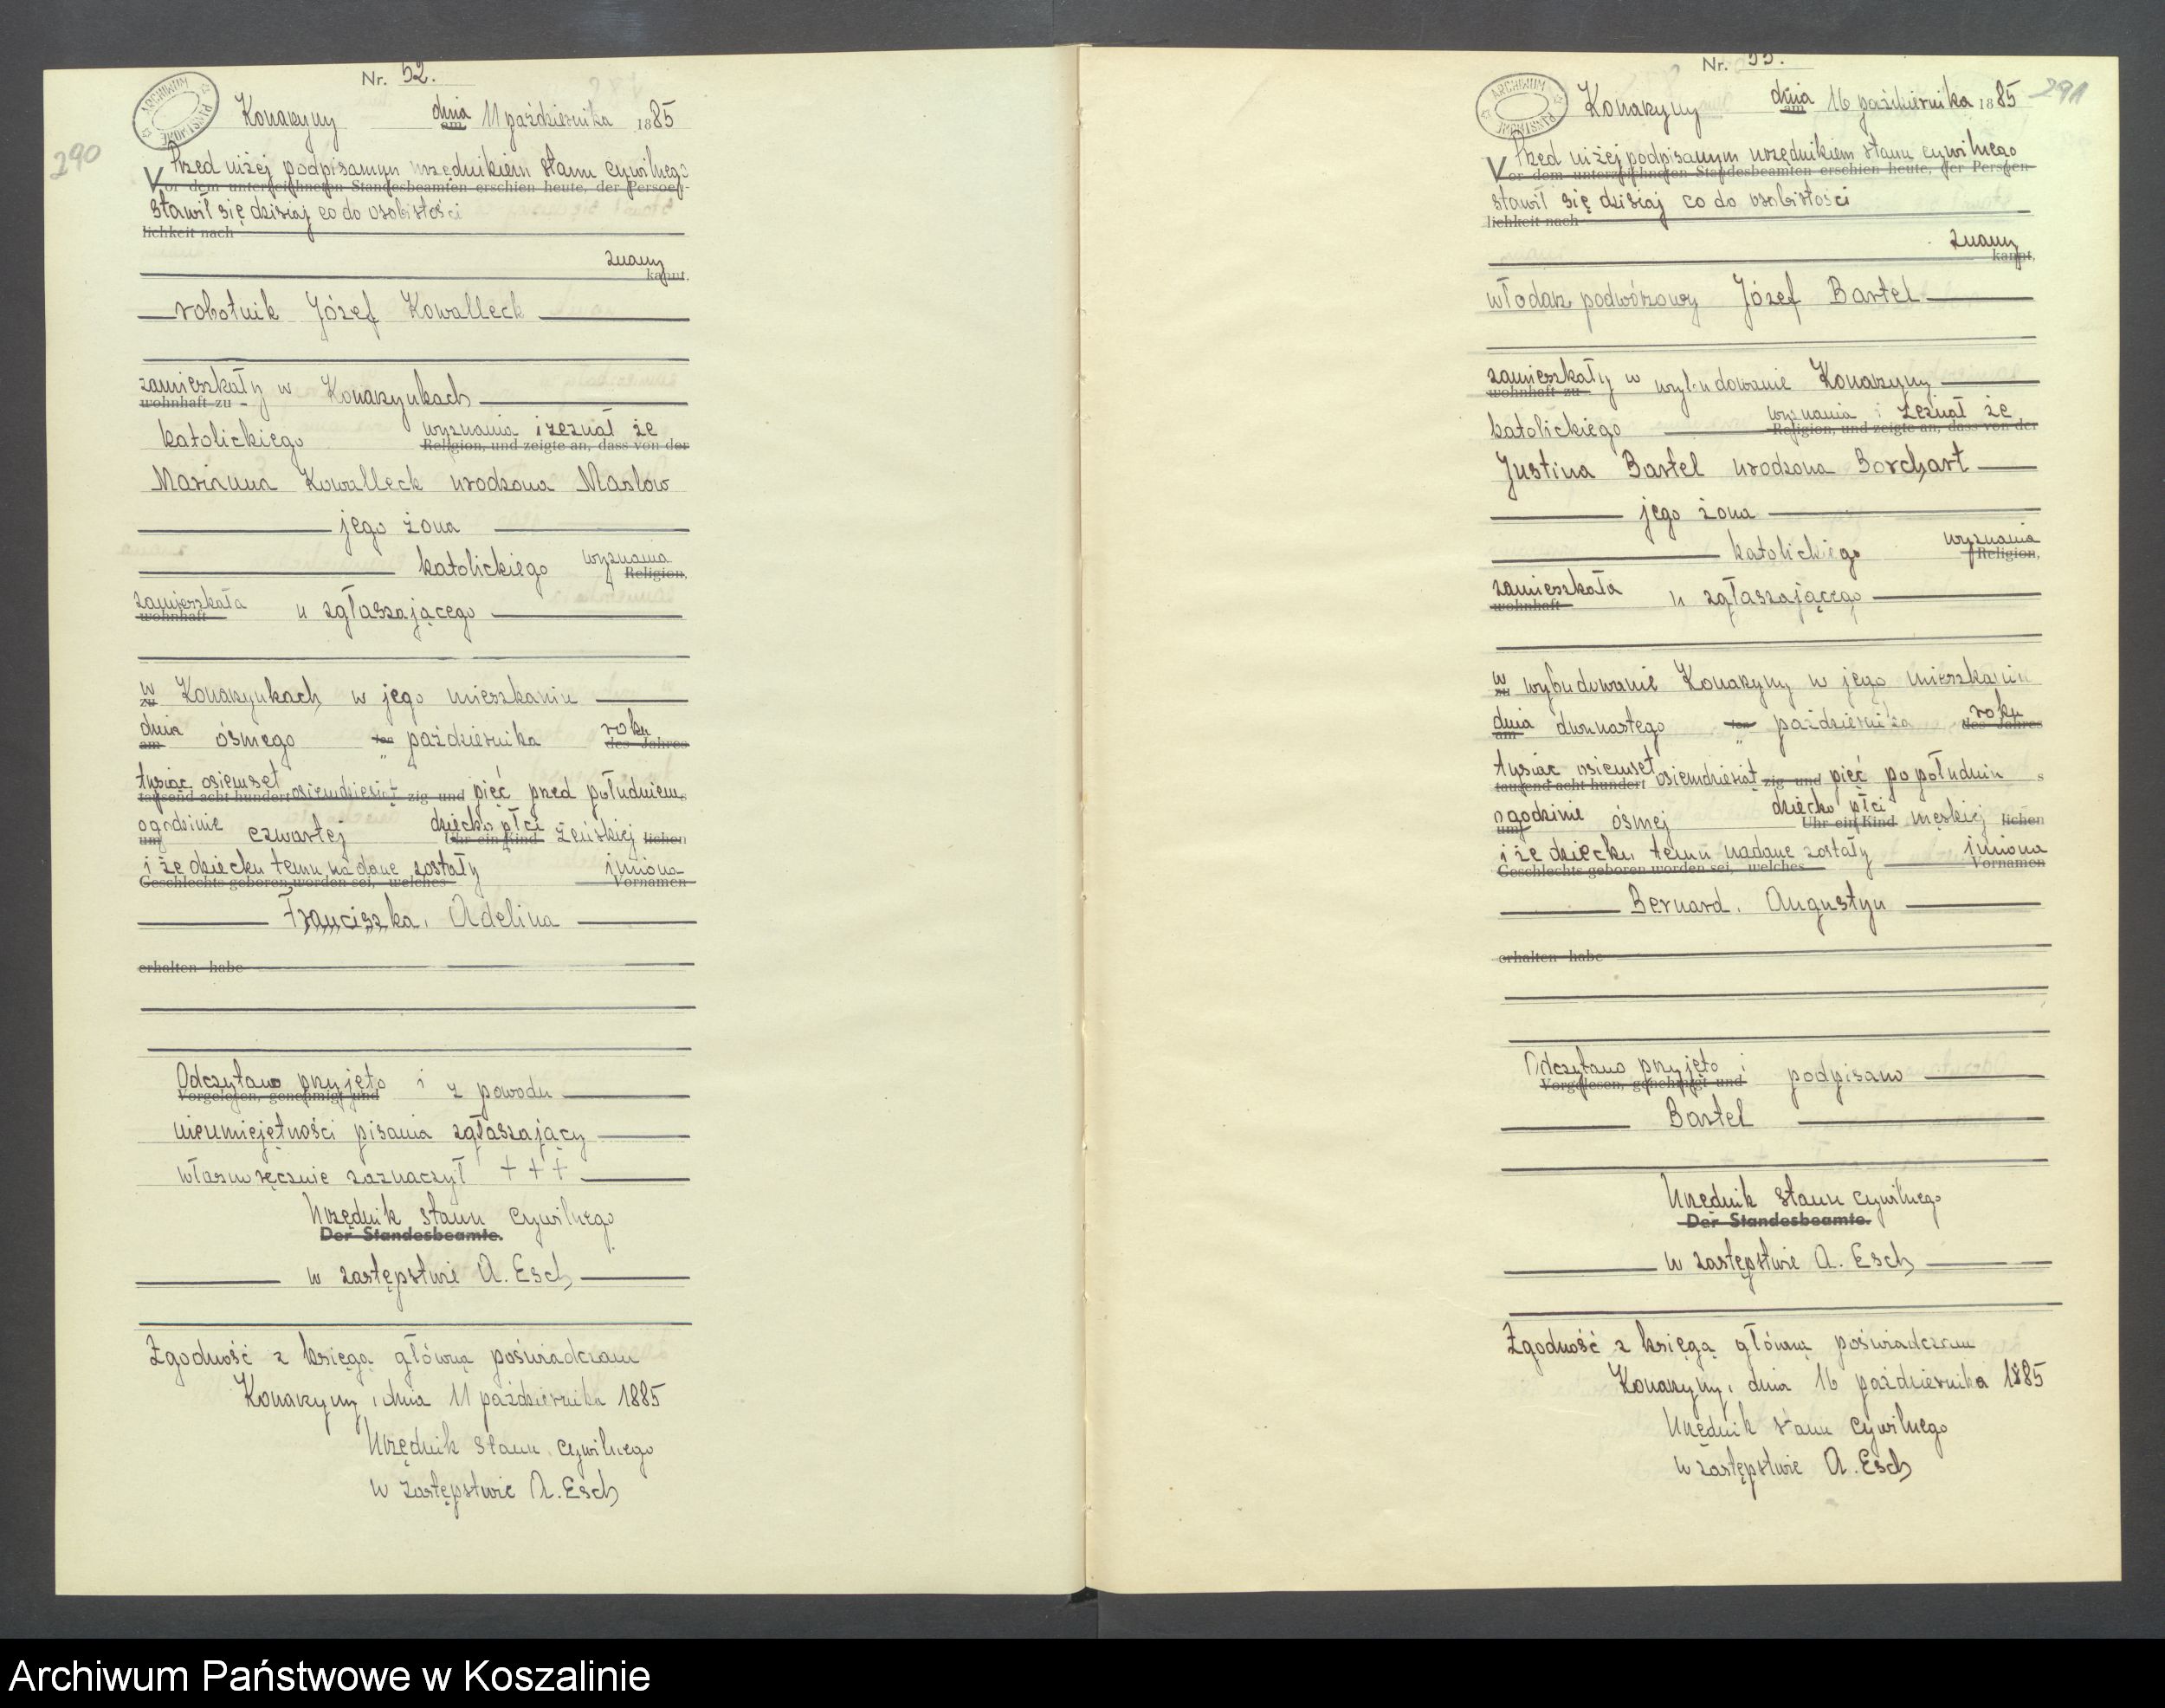 Nr. 52.
ARCHIWUM PAŃSTWOWE
Konarzyny dnia am 11 października 1885
290
Przed niżej podpisanym urzędnikiem stanu cywilnego
Vor dem unterzeichneten Standesbeamten erschien heute, der Persoen-
stawił się dzisiaj co do osobistości
lichkeit nach
znany
kannt,
robotnik Józef Kowalleck
zamieszkały w Konarzynkach
wohnhaft zu
katolickiego wyznania i zeznał że
Religion, und zeigte an, dass von der
Marianna Kowalleck urodzona Maslow
jego żona
katolickiego wyznania
Religion,
zamieszkała u zgłaszającego
wohnhaft
w Konarzynkach w jego mieszkaniu
zu
dnia ósmego ten października roku
am des Jahres
tysiąc osiemset
tausend acht hundert osiemdziesiąt zig und pięć przed południem
ogodzinie czwartej dziecko płci żeńskiej lichen
um Uhr ein Kind
i że dziecku temu nadane zostały imiona
Geschlechts geboren worden sei, welches Vornamen
Franciszka, Adelina
erhalten habe
Odczytano przyjęto i z powodu
Vorgelesen, genehmigt und
nieumiejętności pisania zgłaszający
własnoręcznie zaznaczył + + +
Urzędnik stanu cywilnego
Der Standesbeamte.
w zastępstwie A. Esch
Zgodność z księgą główną poświadczam
Konarzyny, dnia 11 października 1885
Urzędnik stanu cywilnego
w zastępstwie A. Esch
Nr. 53.
ARCHIWUM PAŃSTWOWE
Konarzyny dnia am 16 października 1885
291
Przed niżej podpisanym urzędnikiem stanu cywilnego
Vor dem unterzeichneten Standesbeamten erschien heute, der Persoen-
stawił się dzisiaj co do osobistości
lichkeit nach
znany
kannt,
włodarz podwórzowy Józef Bartel
zamieszkały w wybudowanie Konarzyny
wohnhaft zu
katolickiego wyznania i zeznał że
Religion, und zeigte an, dass von der
Justina Bartel urodzona Borchart
jego żona
katolickiego wyznania
Religion,
zamieszkała u zgłaszającego
wohnhaft
w wybudowanie Konarzyny w jego mieszkaniu
zu
dnia dwunastego ten października roku
am des Jahres
tysiąc osiemset
tausend acht hundert osiemdziesiąt zig und pięć po południu
ogodzinie ósmej dziecko płci męskiej lichen
um Uhr ein Kind
i że dziecku temu nadane zostały imiona
Geschlechts geboren worden sei, welches Vornamen
Bernard, Augustyn
erhalten habe
Odczytano przyjęto i podpisano
Vorgelesen, genehmigt und
Bartel
Urzędnik stanu cywilnego
Der Standesbeamte.
w zastępstwie A. Esch
Zgodność z księgą główną poświadczam
Konarzyny, dnia 16 października 1885
Urzędnik stanu cywilnego
w zastępstwie A. Esch
Archiwum Państwowe w Koszalinie